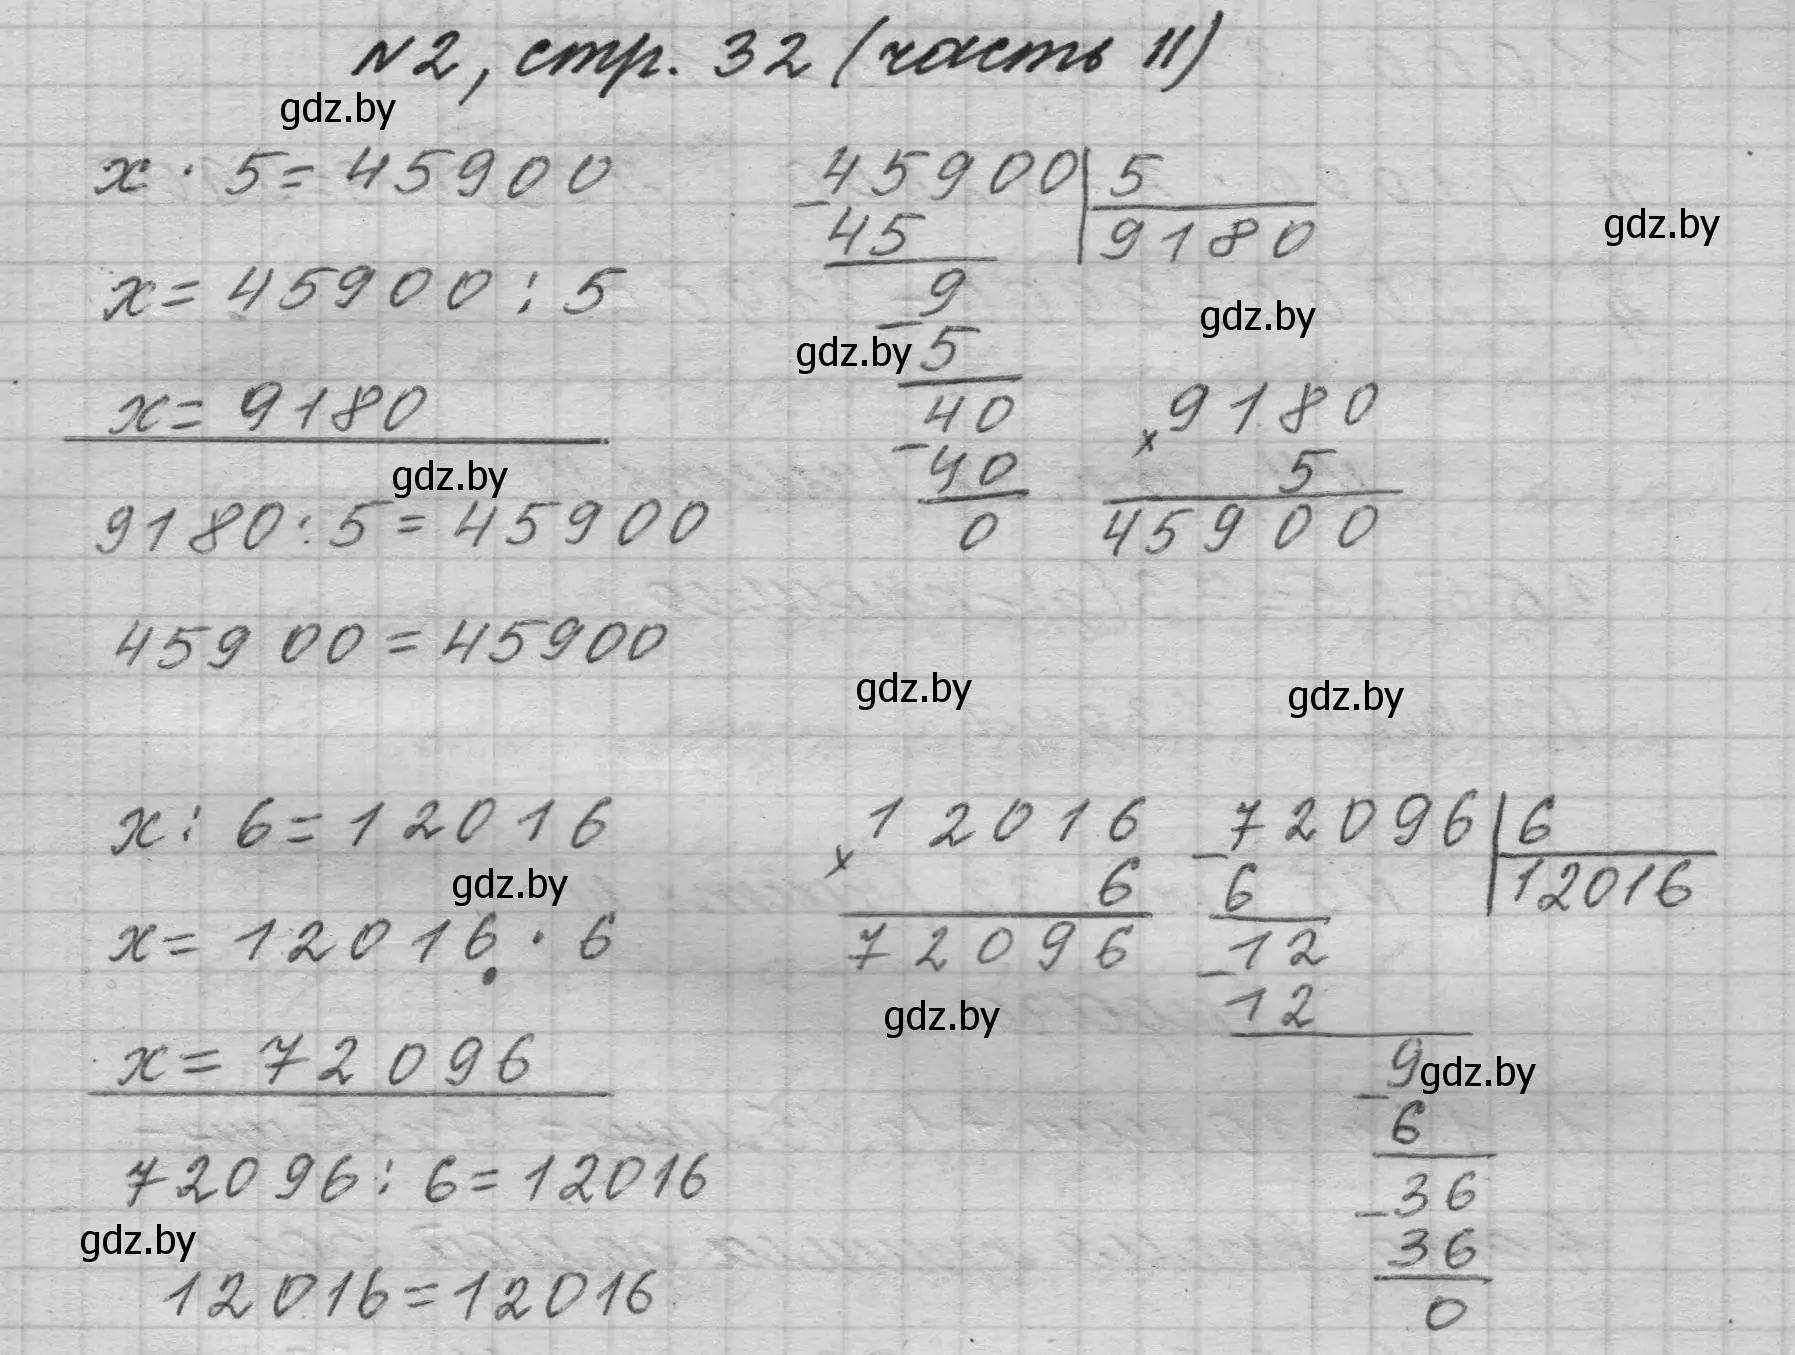 N2, стр. 32 (часть II)
gdz.by
x · 5 = 45900
x = 45900 : 5
x = 9180
gdz.by
9180 : 5 = 45900
45900 = 45900
45900 | 5
45 | 9180
9
5
gdz.by
40
40
0
gdz.by
gdz.by
9180
× 5
45900
gdz.by
gdz.by
x : 6 = 12016
gdz.by
x = 12016 · 6
x = 72096
72096 : 6 = 12016
gdz.by
12016 = 12016
12016
× 6
72096
gdz.by
72096 | 6
6 | 12016
12
12
9
gdz.by
6
36
36
0